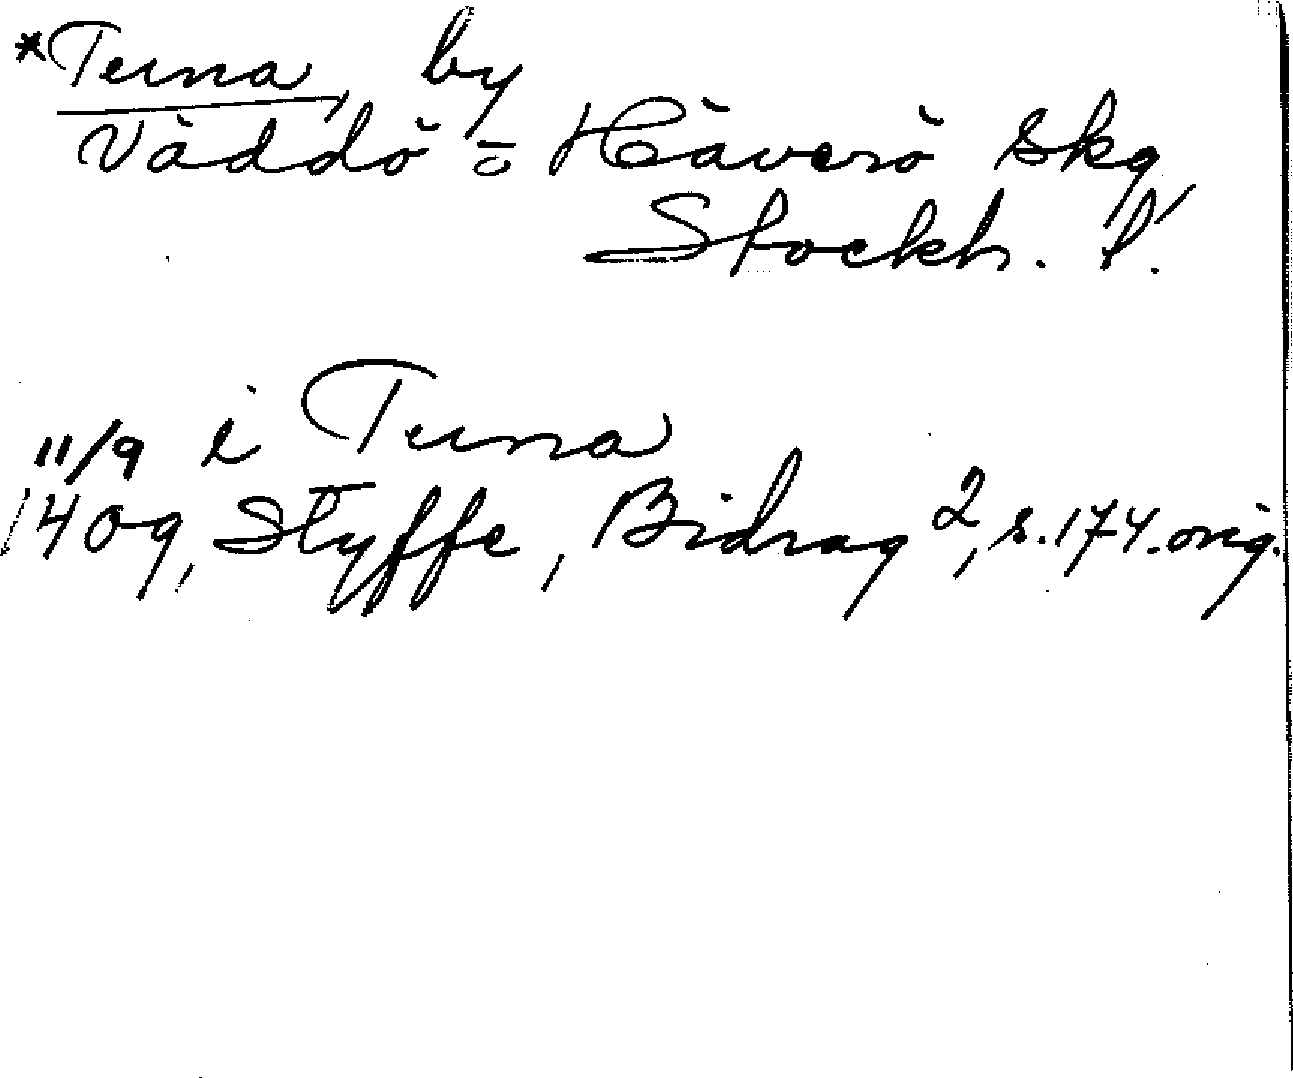 *Tuna, by
Väddö o Häverö skg
Stockh. l.
11/9 i Tuna
1409, Styffe, Bidrag 2, s. 174. orig.